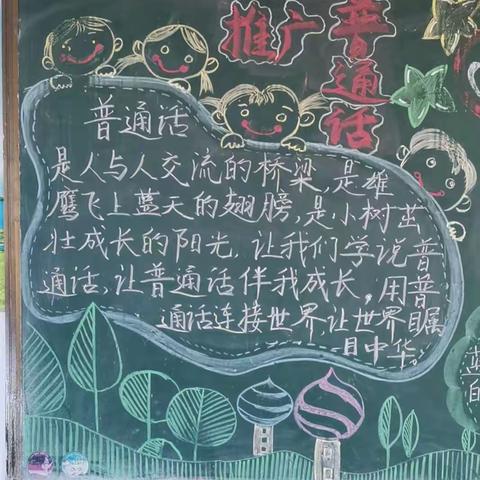 推广普通话
普通话
是人与人交流的桥梁,是雄
鹰飞上蓝天的翅膀,是小树茁
壮成长的阳光,让我们学说普
通话,让普通话伴我成长,用普
通话连接世界让世界瞩
目中华。